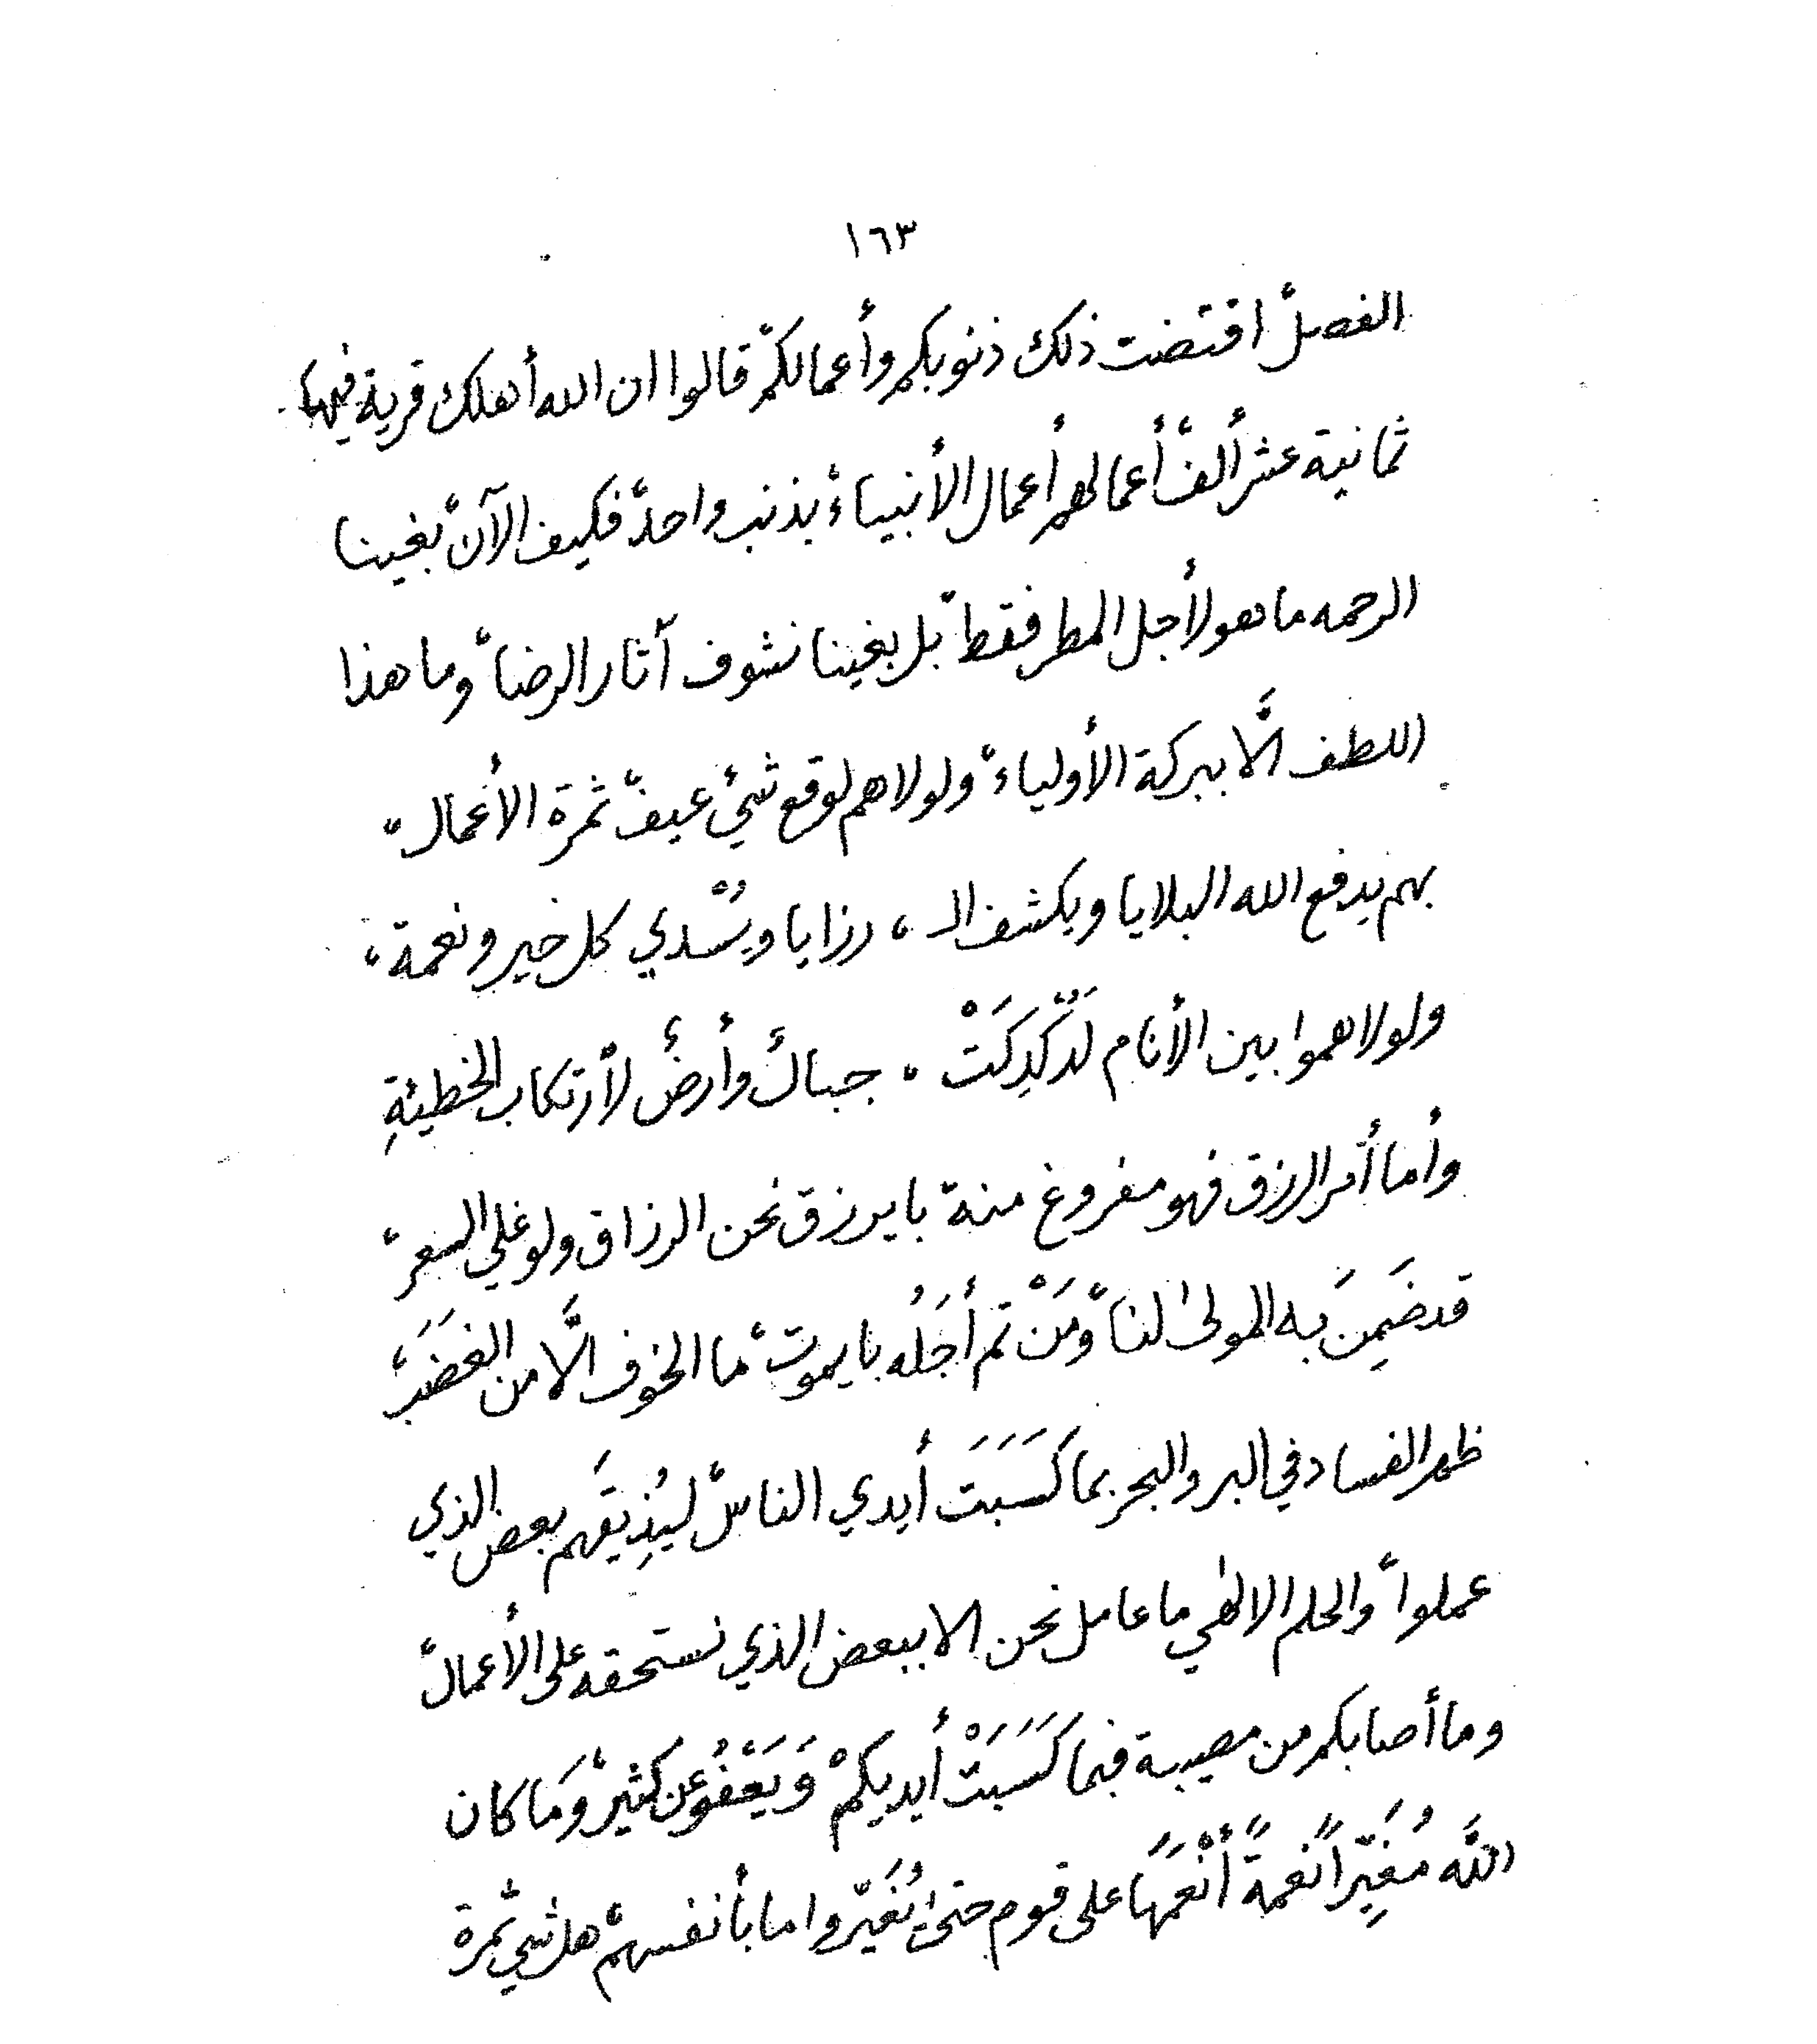 ١٦٣
الفصل، اقتضت ذلك ذنوبكم وأعمالكم، قالوا ان الله أهلك قرية فيها
ثمانية عشر ألف، أعمالهم أعمال الأنبياء، بذنب واحد، فكيف الآن، بغينا
الرحمه ماهو لأجل المطر فقط، بل بغينا نشوف آثار الرضا، وما هذا
اللطف الَّا ببركة الأولياء، ولولاهم لوقع شيئ عيف، ثمرة الأعمال،
بهم يدفع الله البلايا ويكشف الـ ، رزايا ويُسْدي كل خير ونعمة ،
ولولاهموا بين الأنام لَدُكْدِكَتْ ، جبالٌ وأرضٌ لأرتكاب الخطيئةِ
وأما أمر الرزق فهو مفروغ منه، با يرزق نحن الرزاق ولو غلي السعر،
قد ضَمِنَ به المولى لنا، ومَنْ تم أجَلُه با يموت، ما الخوف الَّا من الغضَب،
ظهر الفساد في البر والبحر بما كَسَبَت أيدي الناس، ليُذِيقَهم بعض الذي
عملوا، والحلم الالهي ما عامل نحن الا ببعض الذي نستحقه على الأعمال،
وما أصابكم من مصيبة فبما كَسَبَتْ أيديكمْ وَيَعْفُو عن كثير، وَمَا كان
اللَّه مُغَيِّراً نعمةً أنْعَمَهَا على قوم حتى يُغَيِّروا ما بأنفسهم، هل شي ثمرة